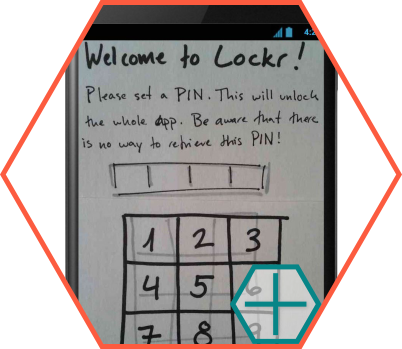 4:2
Welcome to Lockr!
Please set a PIN. This will unlock
the whole App. Be aware that there
is no way to retrieve this PIN!
1 2 3
4 5 6
7 8 9